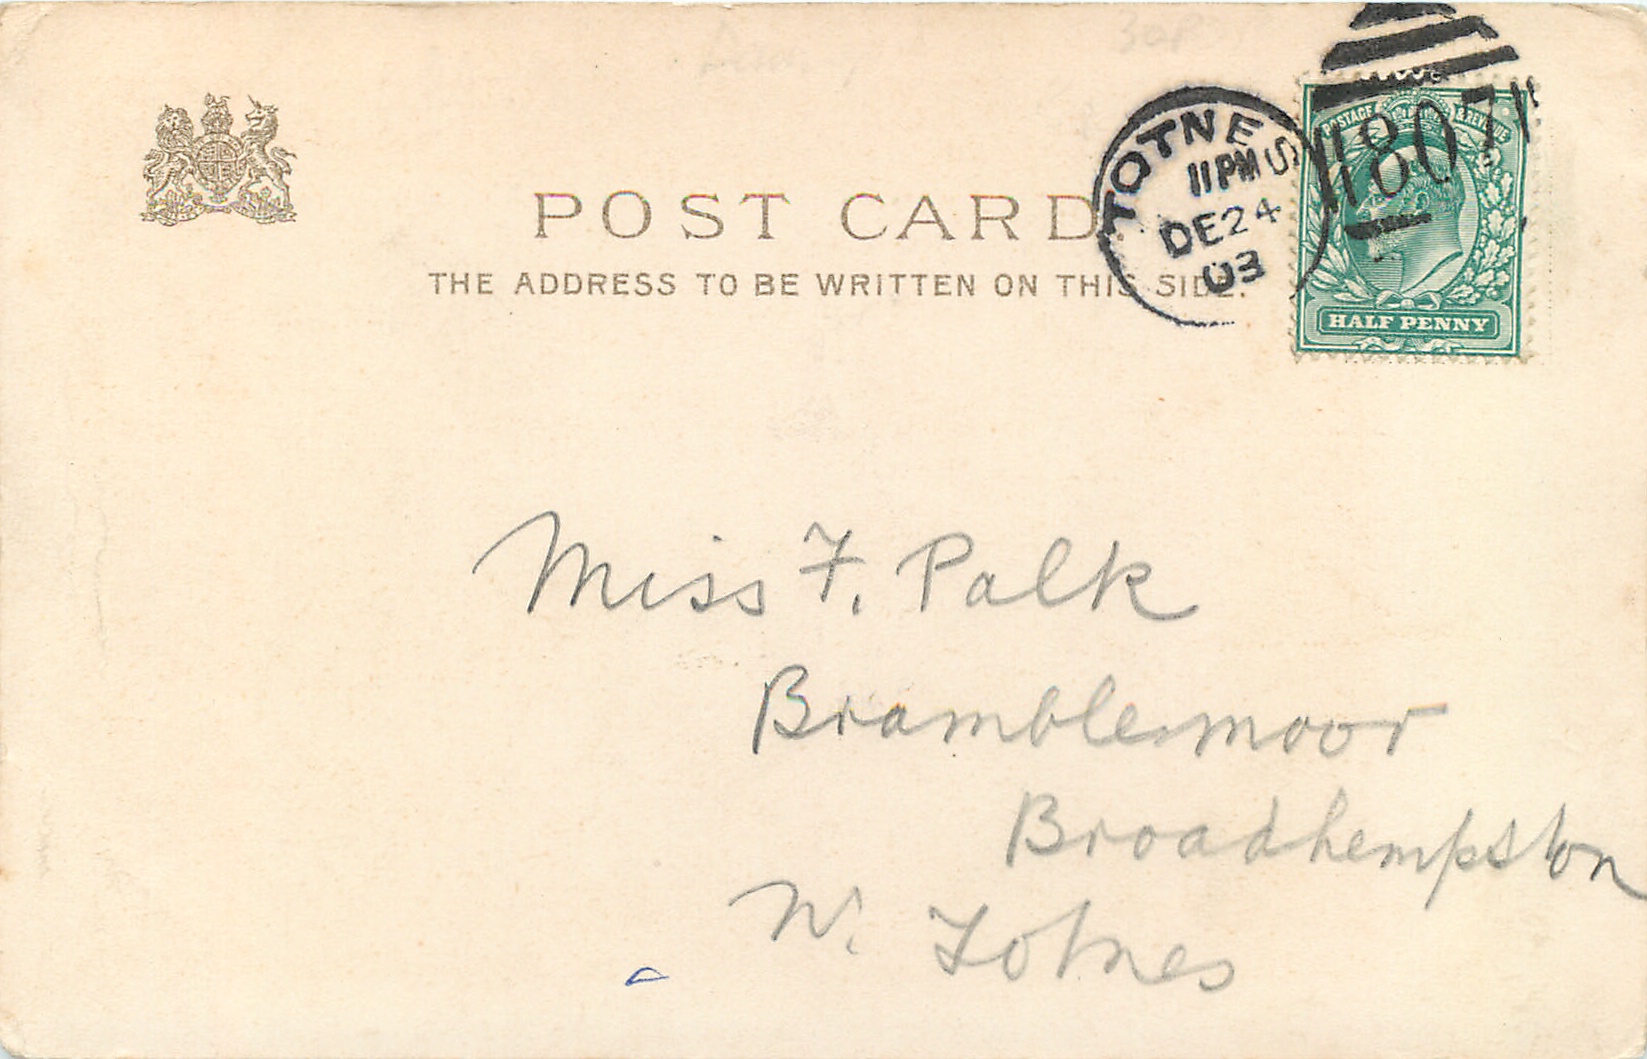 POST CARD
THE ADDRESS TO BE WRITTEN ON THIS SIDE.
TOTNES
11PM
DE24
03
807
POSTAGE & REVENUE
HALF PENNY
Miss F. Palk
Bramblemoor
Broadhempston
Nr. Totnes